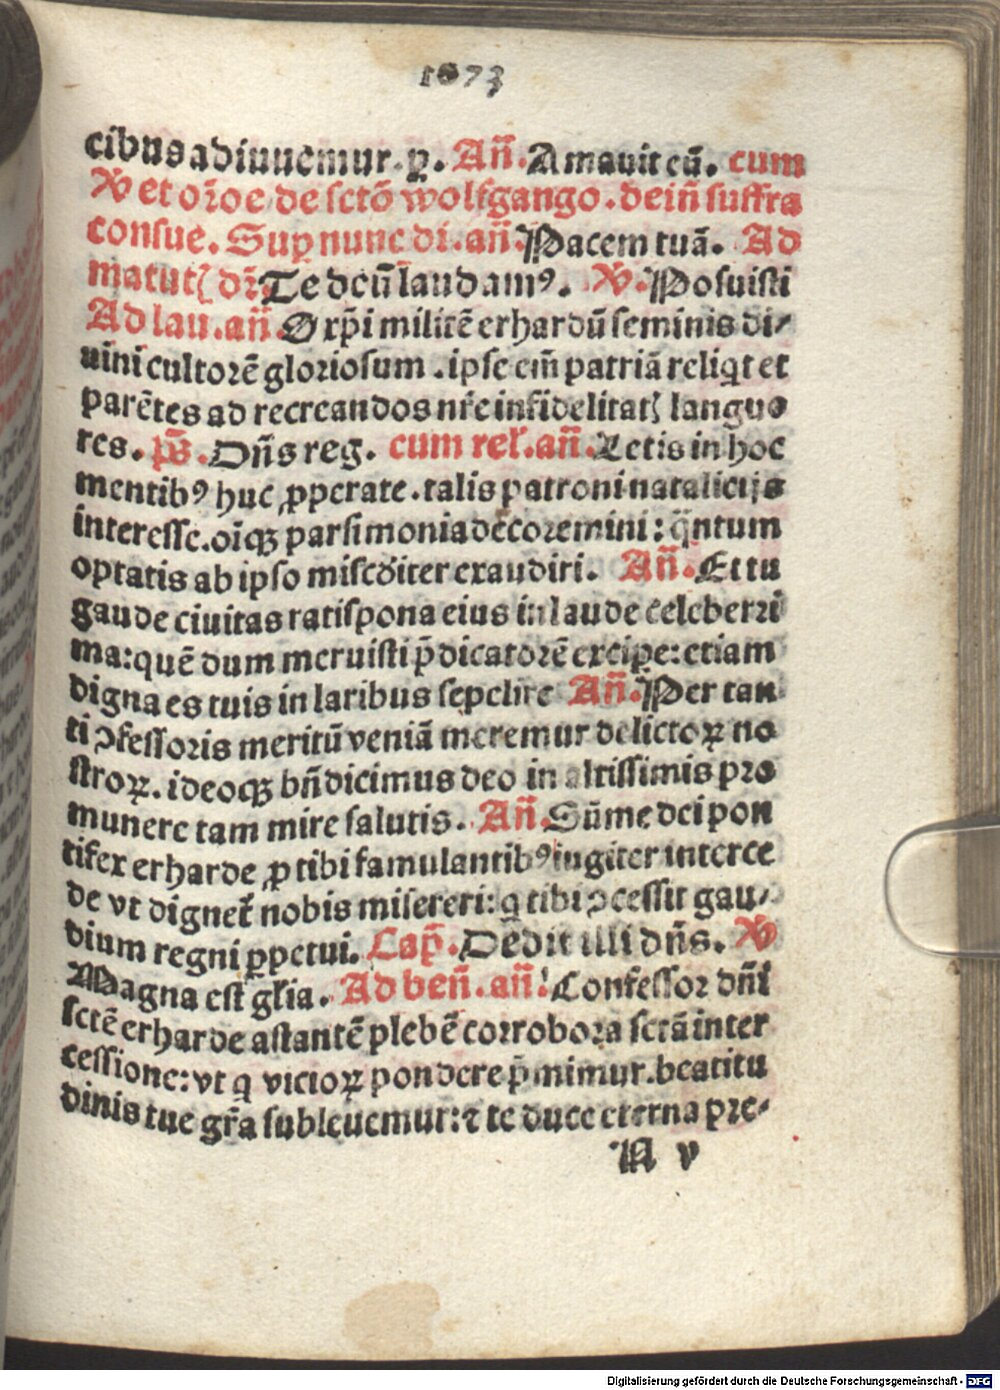 1073
cibus adiuuemur. ꝑ. Añ. Amauit eũ. cum
℣ et orōe de sctō wolfgango. deiñ suffra
consue. Suꝑ nunc di. añ. Pacem tuā. Ad
matutꝭ dr̄. Te deū laudamꝰ. ℣. Posuisti
Ad lau. añ. O xp̄i militē erhardū seminis di/
uini cultorē gloriosum . ipse em̄ patriā reliqt et
parētes ad recreandos nr̄e infidelitatꝭ languo
res. p̄s. Dñs reg. cum rel̄. añ. Letis in hoc
mentibꝰ huc ꝓperate. talis patroni natalicijs
interesse. oīqꝫ parsimonia decoremini: q̄ntum
optatis ab ipso misc̄diter exaudiri. Añ. Et tu
gaude ciuitas ratispona eius in laude celeberri
ma: quē dum meruisti p̄dicatorē excipe: etiam
digna es tuis in laribus sepelire Añ. Per tan
ti ↄfessoris meritū veniā meremur delictoꝝ no
stroꝝ. ideoqꝫ bñdicimus deo in altissimis pro
munere tam mire salutis. Añ. Sūme dei pon
tifex erharde ꝓ tibi famulantibꝰ iugiter interce
de vt dignet̄ nobis misereri: q tibi ↄcessit gau/
dium regni ꝑpetui. Cap̄. Dedit illi dñs. ℣
Magna est gl̄ia. Ad beñ. añ. Confessor dñi
sctē erharde astantē plebē corrobora sctā inter
cessione: vt q vicioꝝ pondere p̄mimur. beatitu
dinis tue gr̄a subleuemur: ⁊ te duce eterna pre/
A v
Digitalisierung gefördert durch die Deutsche Forschungsgemeinschaft - DFG